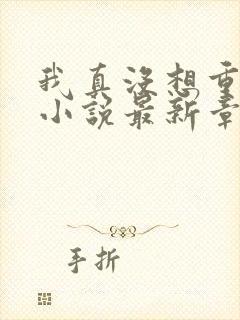 我真没想重
小说最新章
手折